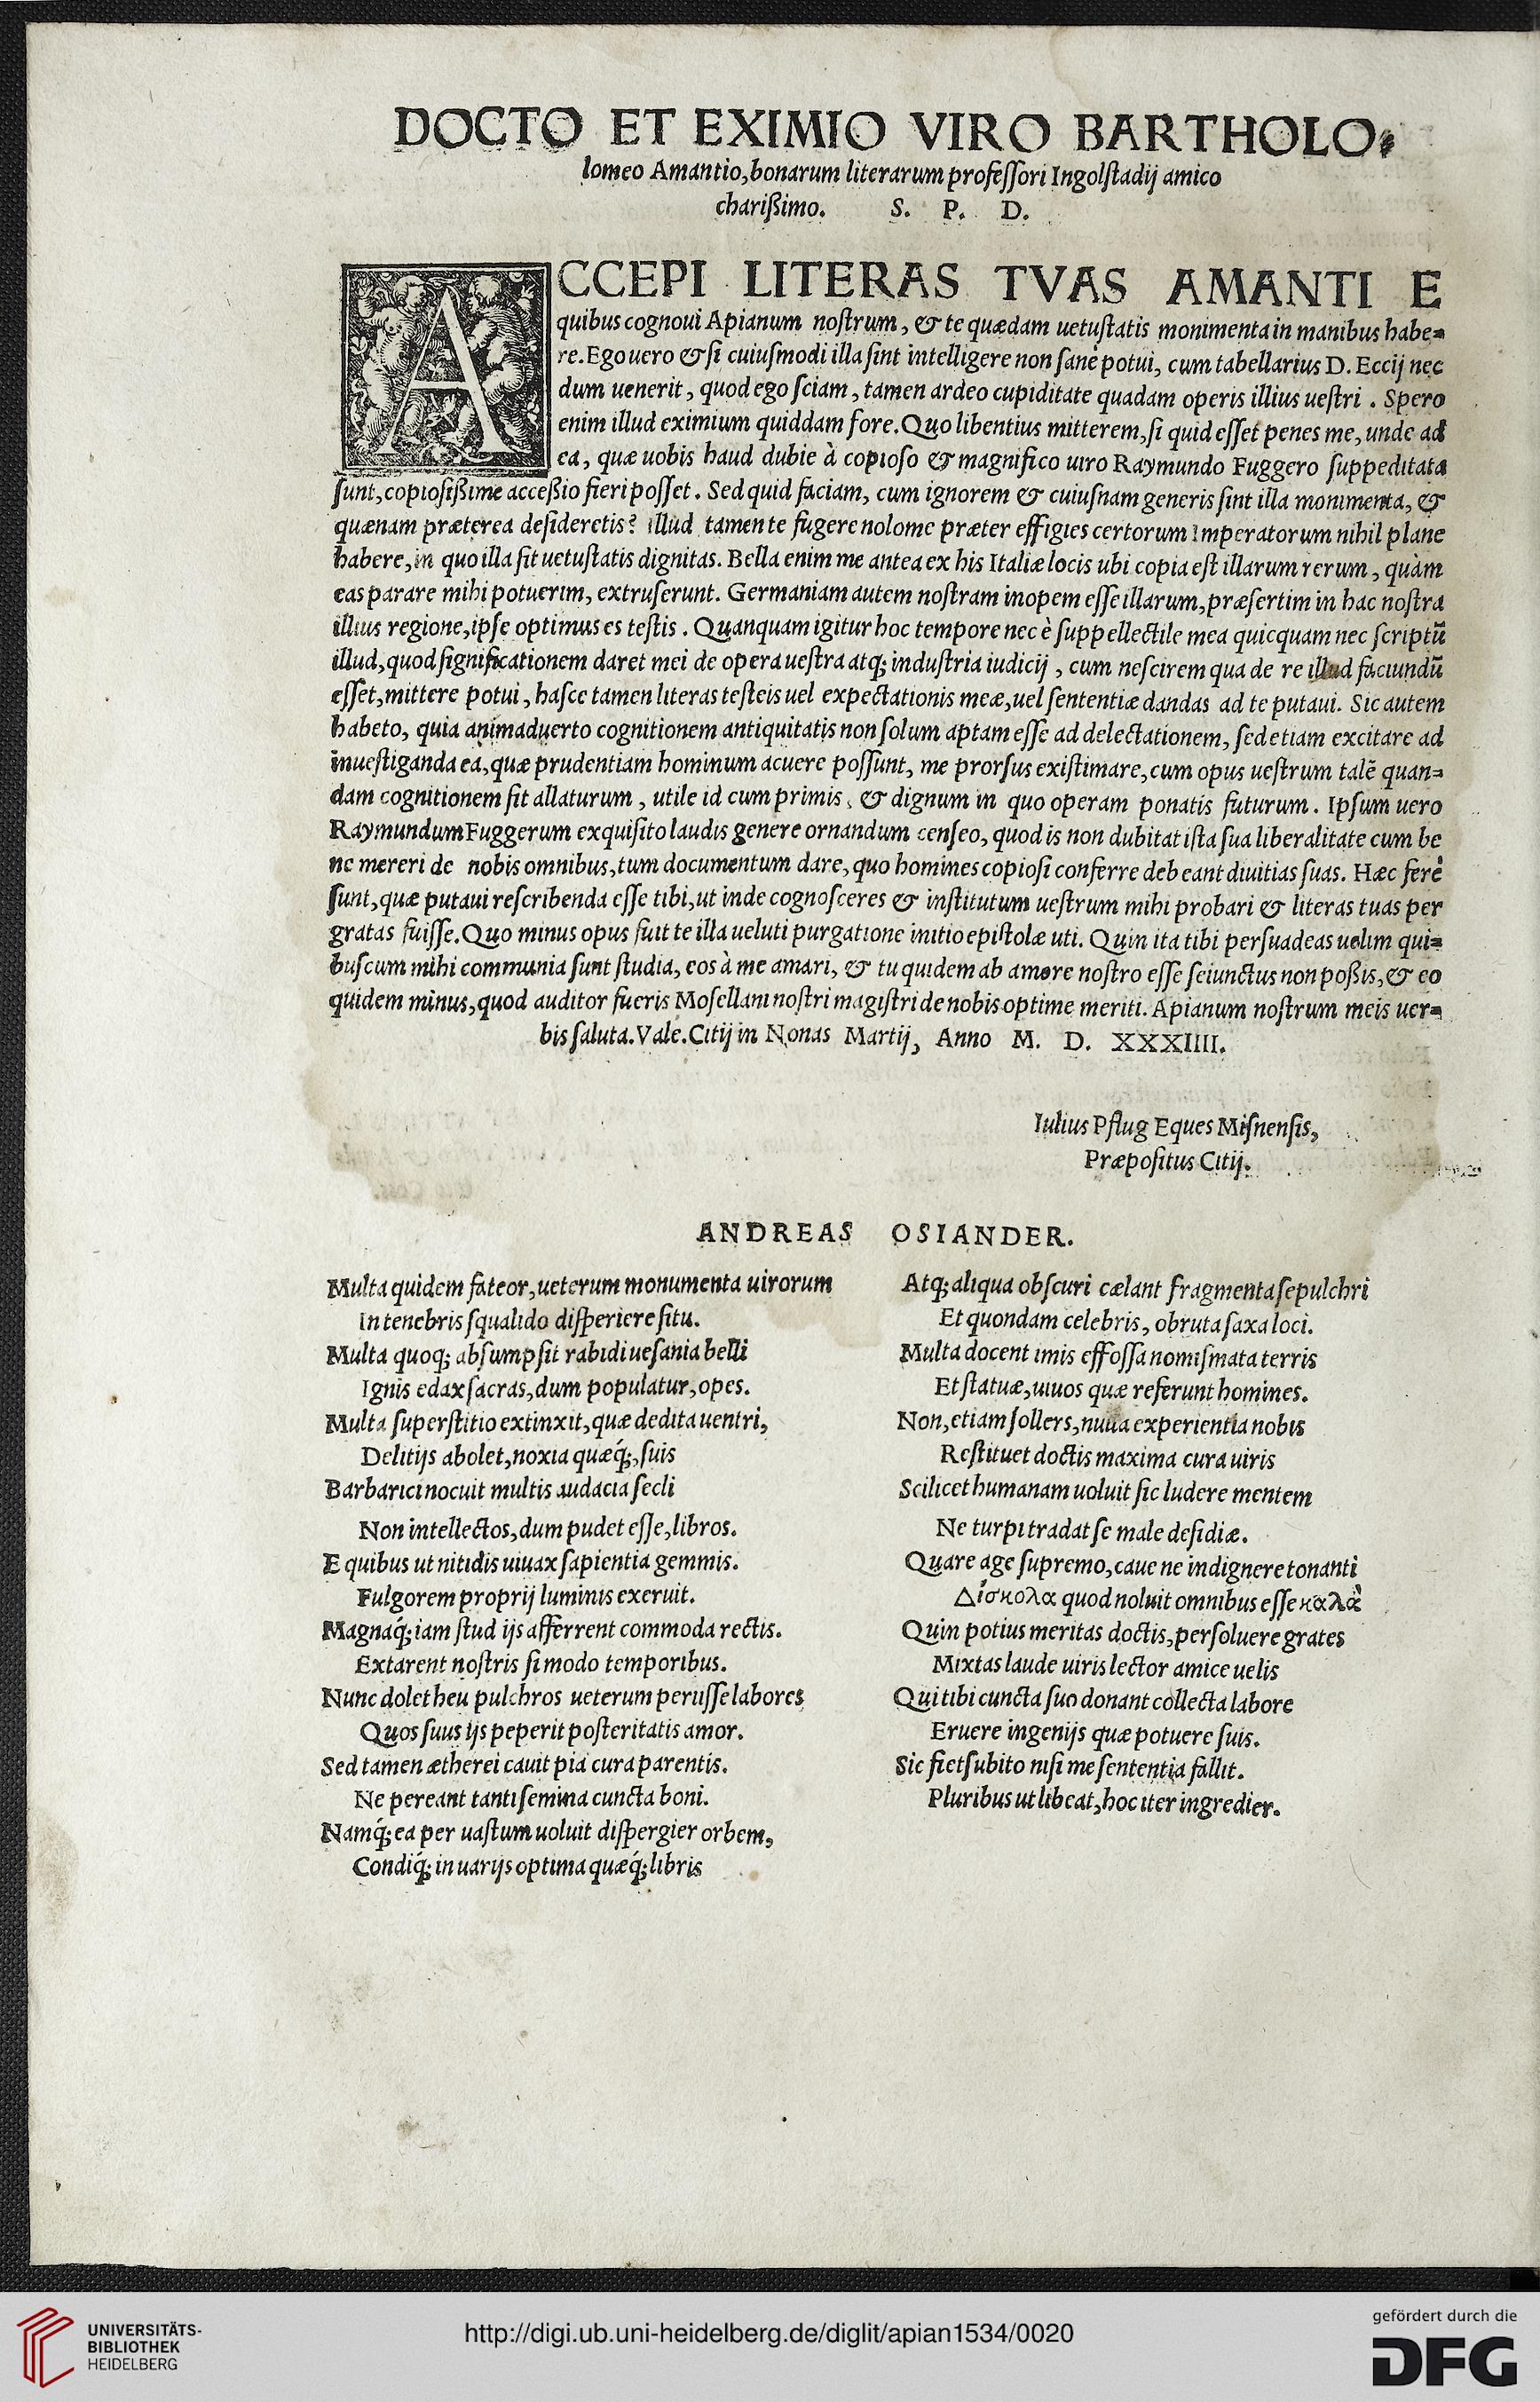 DOCTO ET EXIMIO VIRO BARTHOLO⸗
lomeo Amantio, bonarum literarum professori Ingolstadij amico
charißimo. S. P. D.
ACCEPI LITERAS TVAS AMANTI E
quibus cognoui Apianum nostrum, & te quædam uetustatis monimenta in manibus habe⸗
re. Ego uero & si cuiusmodi illa sint intelligere non sanè potui, cum tabellarius D. Eccij nec
dum uenerit, quod ego sciam, tamen ardeo cupiditate quadam operis illius uestri. Spero
enim illud eximium quiddam fore. Quo libentius mitterem, si quid esset penes me, unde ad
ea, quæ uobis haud dubie à copioso & magnifico uiro Raymundo Fuggero suppeditata
sunt, copiosißime acceßio fieri posset. Sed quid faciam, cum ignorem & cuiusnam generis sint illa monimenta, &
quænam præterea desideretis? illud tamen te fugere nolo me præter effigies certorum Imperatorum nihil plane
habere, in quo illa sit uetustatis dignitas. Bella enim me antea ex his Italiæ locis ubi copia est illarum rerum, quàm
eas parare mihi potuerim, extruserunt. Germaniam autem nostram inopem esse illarum, præsertim in hac nostra
illius regione, ipse optimus es testis. Quanquam igitur hoc tempore nec è suppellectile mea quicquam nec scriptũ
illud, quod significationem daret mei de opera uestra atq; industria iudicij, cum nescirem qua de re illud faciundũ
esset, mittere potui, hasce tamen literas testeis uel expectationis meæ, uel sententiæ dandas ad te putaui. Sic autem
habeto, quia animaduerto cognitionem antiquitatis non solum aptam esse ad delectationem, sed etiam excitare ad
inuestiganda ea, quæ prudentiam hominum acuere possunt, me prorsus existimare, cum opus uestrum talẽ quan⸗
dam cognitionem sit allaturum, utile id cum primis, & dignum in quo operam ponatis futurum. Ipsum uero
Raymundum Fuggerum exquisito laudis genere ornandum censeo, quod is non dubitat ista sua liberalitate cum be
ne mereri de nobis omnibus, tum documentum dare, quo homines copiosi conferre debeant diuitias suas. Hæc ferè
sunt, quæ putaui rescribenda esse tibi, ut inde cognosceres & institutum uestrum mihi probari & literas tuas per
gratas fuisse. Quo minus opus fuit te illa ueluti purgatione initio epistolæ uti. Quin ita tibi persuadeas uelim qui⸗
buscum mihi communia sunt studia, eos à me amari, & tu quidem ab amore nostro esse seiunctus non poßis, & eo
quidem minus, quod auditor fueris Mosellani nostri magistri de nobis optime meriti. Apianum nostrum meis uer⸗
bis saluta. Vale. Citij in Nonas Martij, Anno M. D. XXXIIII.
Iulius Pflug Eques Misnensis,
Præpositus Citij.
ANDREAS OSIANDER.
Multa quidem fateor, ueterum monumenta uirorum
In tenebris squalido disperiere situ.
Multa quoq; absumpsit rabidi uesania belli
Ignis edax sacras, dum populatur, opes.
Multa superstitio extinxit, quæ dedita uentri,
Delitijs abolet, noxia quæq́;, suis
Barbarici nocuit multis audacia secli
Non intellectos, dum pudet esse, libros.
E quibus ut nitidis uiuax sapientia gemmis.
Fulgorem proprij luminis exeruit.
Magnaq́; iam stud ijs afferrent commoda rectis.
Extarent nostris si modo temporibus.
Nunc dolet heu pulchros ueterum periisse labores
Quos suus ijs peperit posteritatis amor.
Sed tamen ætherei cauit pia cura parentis.
Ne pereant tanti semina cuncta boni.
Namq́; ea per uastum uoluit dispergier orbem,
Condiq́; in uarijs optima quæq́; libris
Atq; aliqua obscuri cælant fragmenta sepulchri
Et quondam celebris, obruta saxa loci.
Multa docent imis effossa nomismata terris
Et statuæ, uiuos quæ referunt homines.
Non, etiam sollers, nuua experientia nobis
Restituet doctis maxima cura uiris
Scilicet humanam uoluit sic ludere mentem
Ne turpi tradat se male desidiæ.
Quare age supremo, caue ne indignere tonanti
Δίσκολα quod noluit omnibus esse καλὰ
Quin potius meritas doctis, persoluere grates
Mixtas laude uiris lector amice uelis
Qui tibi cuncta suo donant collecta labore
Eruere ingenijs quæ potuere suis.
Sic fiet subito nisi me sententia fallit.
Pluribus ut libeat, hoc iter ingredier.
UNIVERSITÄTS-
BIBLIOTHEK
HEIDELBERG
http://digi.ub.uni-heidelberg.de/diglit/apian1534/0020
gefördert durch die
DFG